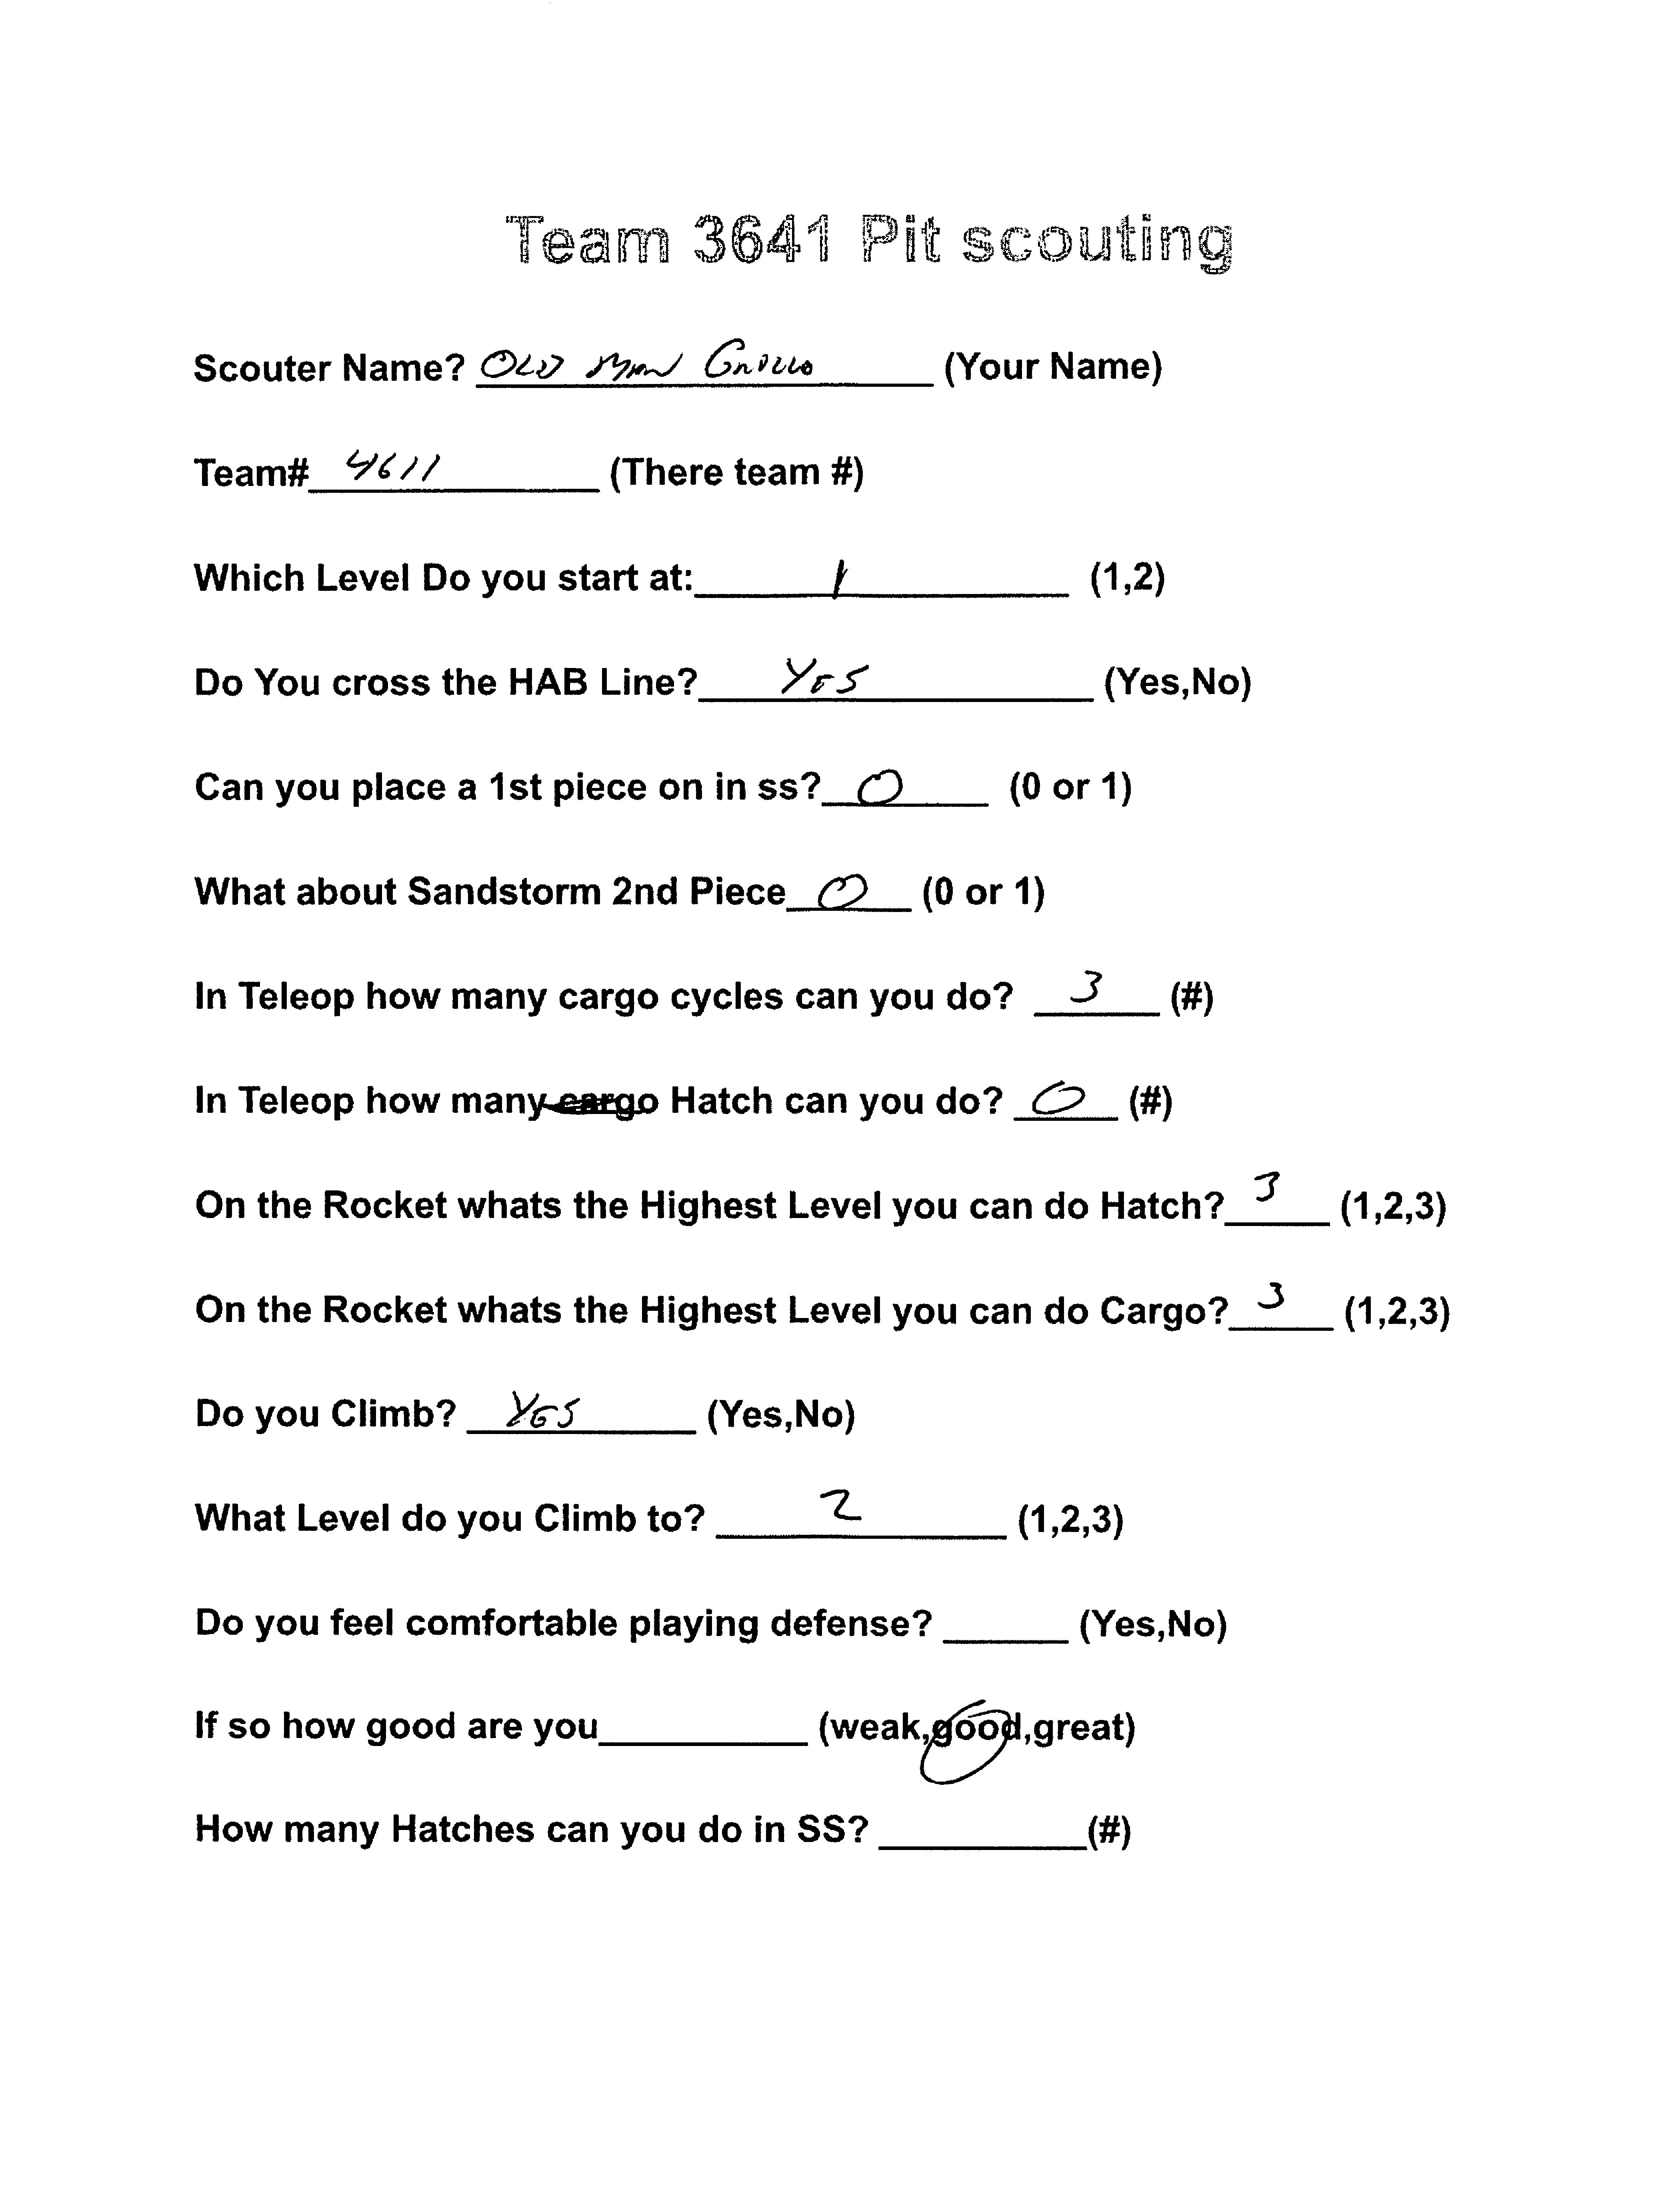 Team 3641 Pit scouting
Scouter Name? OLD MAN (Your Name)
Team# 4611 (There team #)
Which Level Do you start at: 1 (1,2)
Do You cross the HAB Line? YES (Yes,No)
Can you place a 1st piece on in ss? 0 (0 or 1)
What about Sandstorm 2nd Piece 0 (0 or 1)
In Teleop how many cargo cycles can you do? 3 (#)
In Teleop how many cargo Hatch can you do? 0 (#)
On the Rocket whats the Highest Level you can do Hatch? 3 (1,2,3)
On the Rocket whats the Highest Level you can do Cargo? 3 (1,2,3)
Do you Climb? YES (Yes,No)
What Level do you Climb to? 2 (1,2,3)
Do you feel comfortable playing defense? (Yes,No)
If so how good are you (weak,good,great)
How many Hatches can you do in SS? (#)